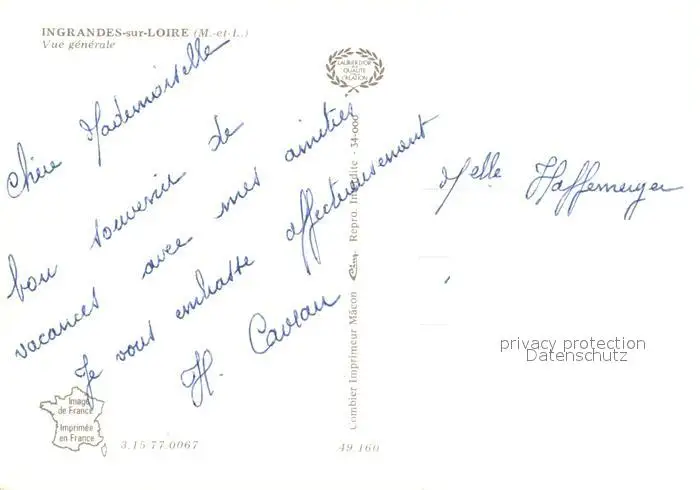 INGRANDES-sur-LOIRE (M.-et-L.)
Vue générale
Chère Mademoiselle
bon souvenir de
vacances avec mes amitiés
Je vous embrasse affectueusement
H. Caveau
LAURIER D'OR
DE LA
QUALITÉ
CRÉATION
Combier Imprimeur Mâcon Cim Repro. Interdite - 34-000
Melle Haffemeyer
privacy protection
Datenschutz
Image
de France
Imprimée
en France
3.15.77.0067
49.160